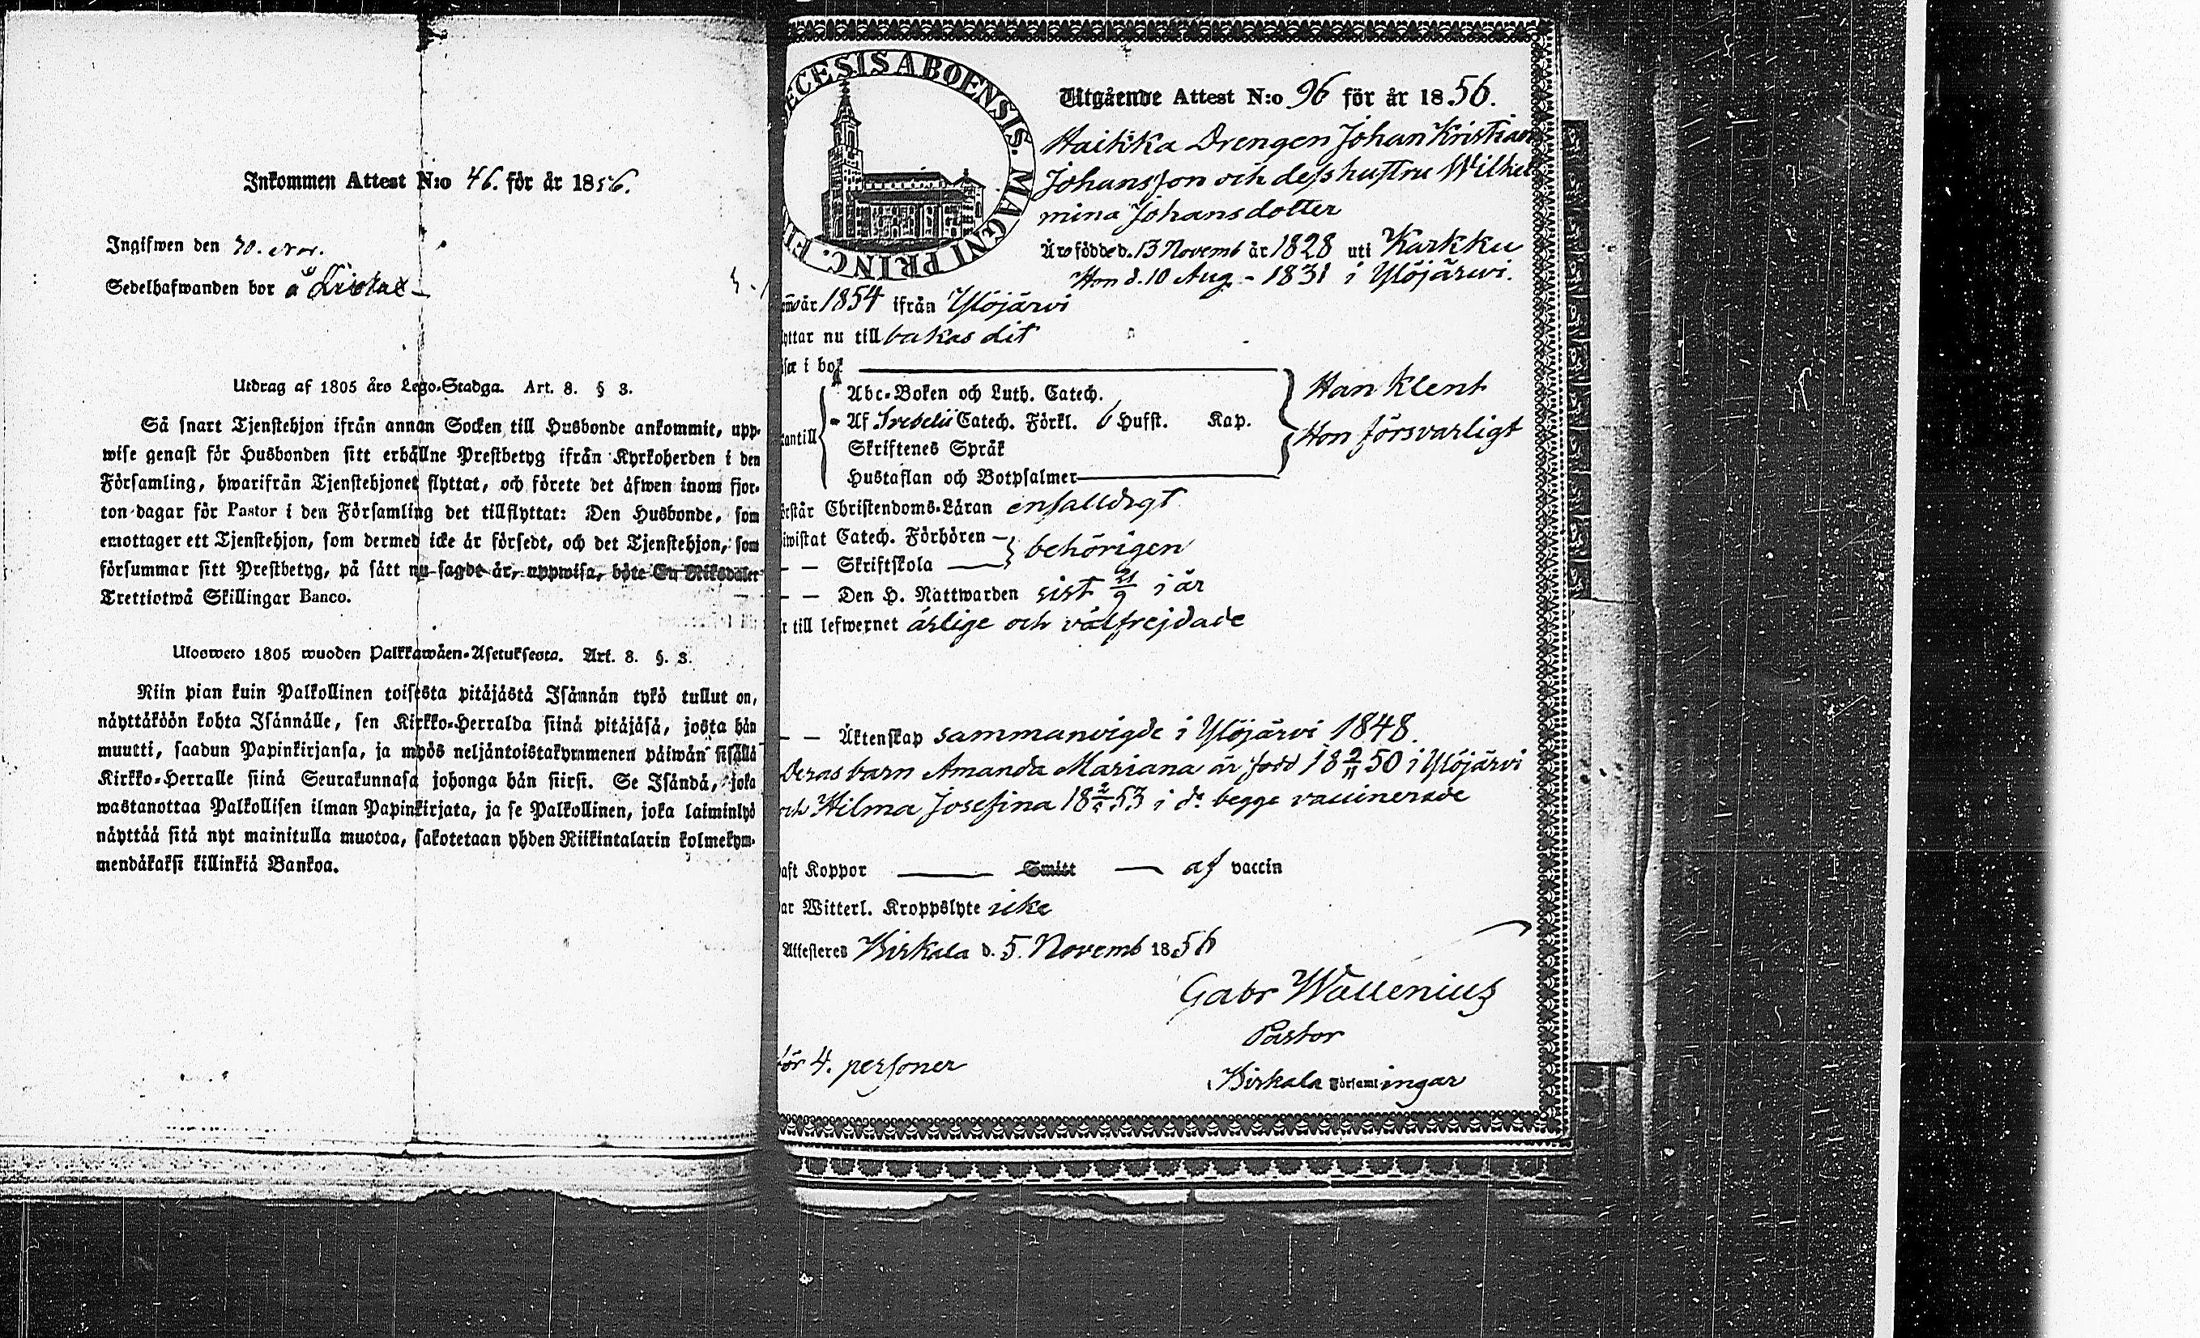 Inkommen Attest N:o 46. för år 1856.
Ingifwen den 30. Nov.
Sedelhafwanden bor å
Utdrag af 1805 års Lego-Stadga. Art. 8. § 3.
Så snart Tjenstehjon ifrån annan Socken till Husbonde ankommit, upp-
wise genast för Husbonden sitt erhållne Prestbetyg ifrån Kyrkoherden i den
Församling, hwarifrån Tjenstehjonet flyttat, och förete det äfwen inom fjor-
ton dagar för Pastor i den Församling det tillflyttat: Den Husbonde, som
emottager ett Tjenstehjon, som dermed icke är försedt, och det Tjenstehjon, som
försummar sitt Prestbetyg, på sätt nu sagdt är, uppwisa, böte En Riksdaler
Trettiotwå Skillingar Banco.
Ulosweto 1805 wuoden Palkkawäen-Asetuksesta. Art. 8. §. 3.
Niin pian kuin Palkollinen toisesta pitäjästä Isännän tykö tullut on,
näyttäköön kohta Isännälle, sen Kirkko-Herralda siinä pitäjäsä, josta hän
muutti, saadun Papinkirjansa, ja myös neljäntoistakymmenen päiwän sisällä
Kirkko-Herralle siinä Seurakunnasa johonga hän siirsi. Se Isändä, joka
wastanottaa Palkollisen ilman Papinkirjata, ja se Palkollinen, joka laiminlyö
näyttää sitä nyt mainitulla muotoa, sakotetaan yhden Riikintalarin kolmekym-
mendäkaksi killinkiä Bankoa.
ECESIS ABOENSIS. MAGNI PRINC. FI
Utgående Attest N:o 96 för år 1856.
Haikka Drengen Johan Kristian
Johansson och dess hustru Wilhel
mina Johansdotter
Äro födde d. 13 Novemb år 1828 uti Karkku
Hon d. 10 Aug - 1831 i Ylöjärwi.
år 1854 ifrån Ylöjärvi
yttar nu till bakas dit
i bok
Abc-Boken och Luth. Catech.
antill - Af Svebelii Catech. Förkl. 6 Hufst. Kap.
Skriftenes Språk
Hustaflan och Botpsalmer
Han klent
Hon försvarligt
rstår Christendoms-Läran enfalldigt
wistat Catech. Förhören
— — Skriftskola
behörigen
— — Den H. Nattwarden sist 21/9 i år
r till lefwernet ärlige och välfrejdade
— — Äktenskap sammanvigde i Ylöjärvi 1848.
Deras barn Amanda Mariana är född 18 2/11 50 i Ylöjärvi
och Hilma Josefina 18 2/5 53 i do begge vaccinerade
aft Koppor — Smitt — af vaccin
ar Witterl. Kroppslyte icke
Attesteres Birkala d. 5. Novemb 1856
Gabr Wallenius
Pastor
för 4. personer
Birkala Församlingar